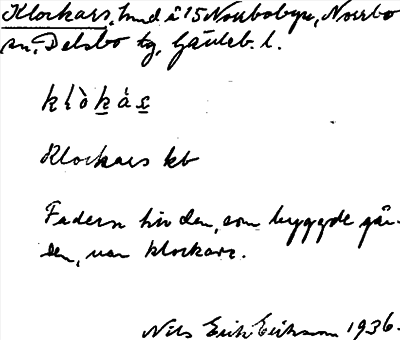 Klockars, hmd å 15 Norrbobyn, Norrbo
sn, Delsbo tg, Gävleb. l.
Klockars kt
Fadern till den, som byggde går-
den, var klockare.
Nils Erik Eriksson 1936.